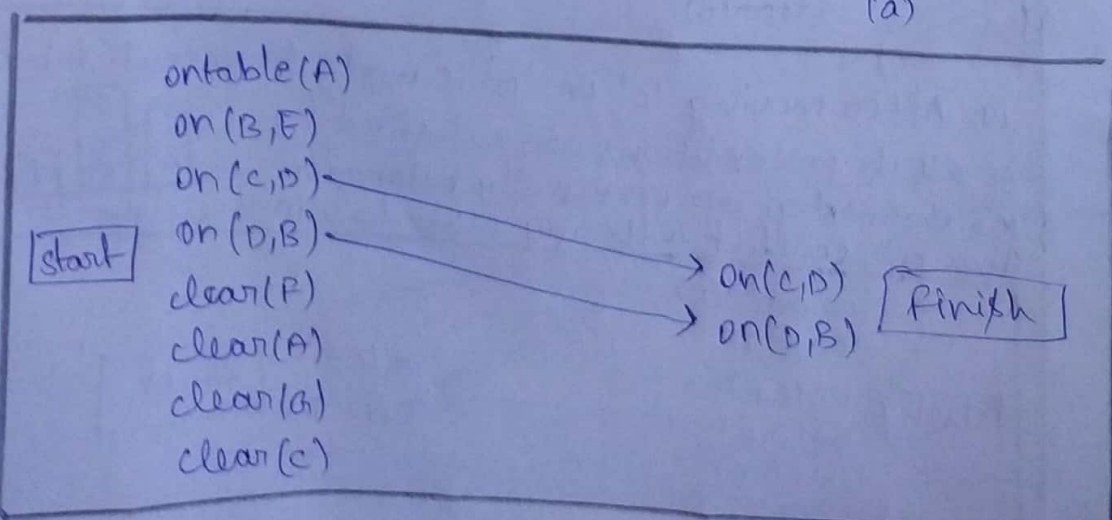 (a)
ontable(A)
on(B,E)
on(C,D)
on(D,B)
start
clear(F)
clear(A)
clear(G)
clear(C)
on(C,D)
on(D,B)
Finish